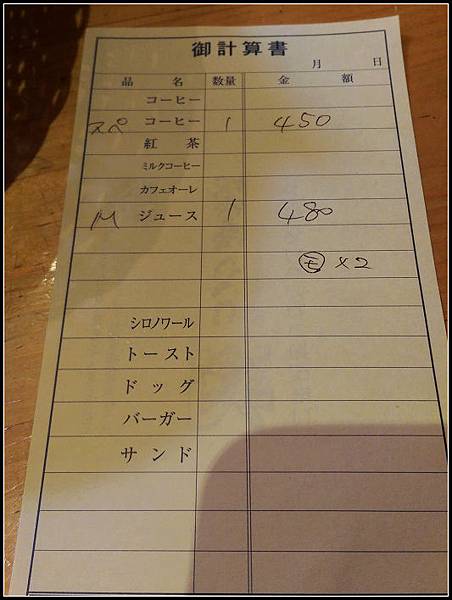 御計算書
月 日
品名 数量 金額
コーヒー
スペ コーヒー 1 450
紅茶
ミルクコーヒー
カフェオーレ
M ジュース 1 480
モ ×2
シロノワール
トースト
ドッグ
バーガー
サンド